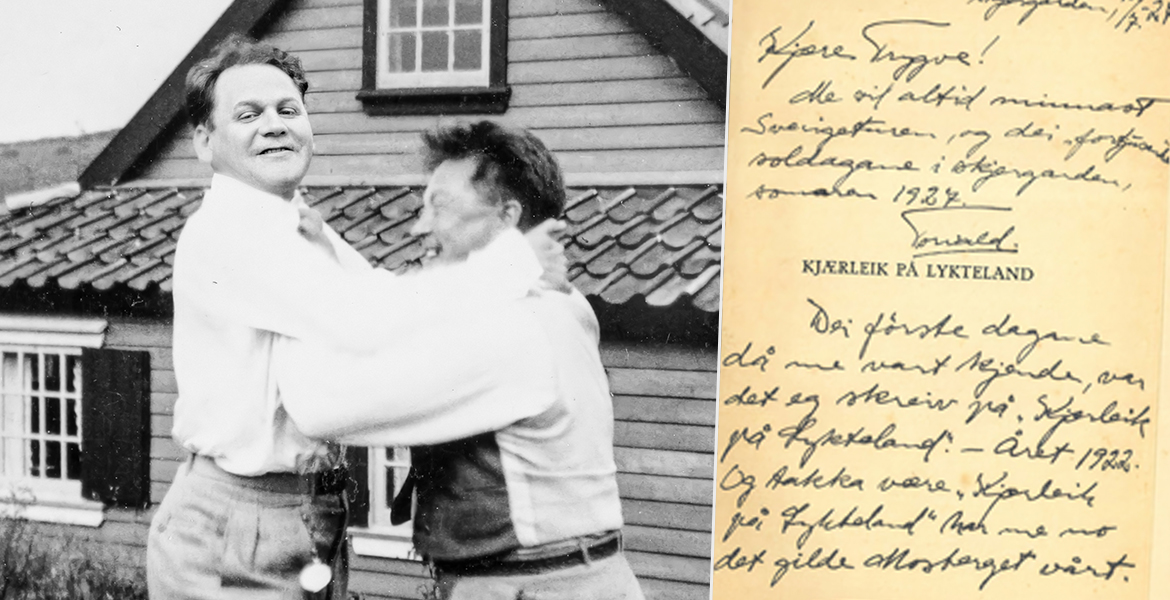 Kjære Trygve!
Me vil altid minnast
Sverigeturen, og dei
soldagane i skjergarden,
somaren 1927.
Torvald.
KJÆRLEIK PÅ LYKTELAND
Dei förste dagane
då me vart kjende, var
det eg skreiv på „Kjærleik
på Lykteland“. – Året 1922.
Og takka være „Kjærleik
på Lykteland“ har me no
det gilde Mosberget vårt.